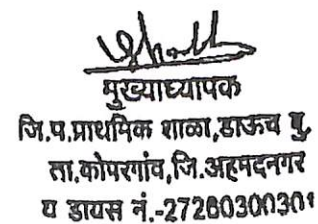 मुख्याध्यापक
जि.प.प्राथमिक शाळा,डाऊच बु,
ता.कोपरगांव,जि.अहमदनगर
य डायस नं.-27260300301